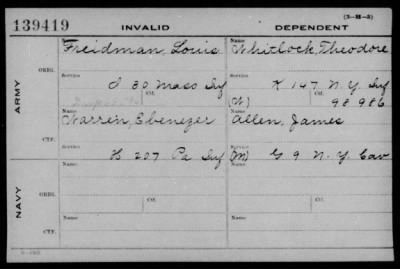 (3-H-3)
139419 INVALID DEPENDENT
Name Name
Freidman, Louis Whitlock, Theodore
ORIG.
Service Service
I 30 Mass Inf K 147 N.Y. Inf
Ctf. Ctf.
(W) 98986
ARMY
Name Name
Warren, Ebenezer Allen, James
CTF.
Service Service
H 207 Pa Inf (M) G 9 N.Y. Cav
Name Name
ORIG.
Service Ctf. Service Ctf.
NAVY
Name Name
CTF.
Service Service